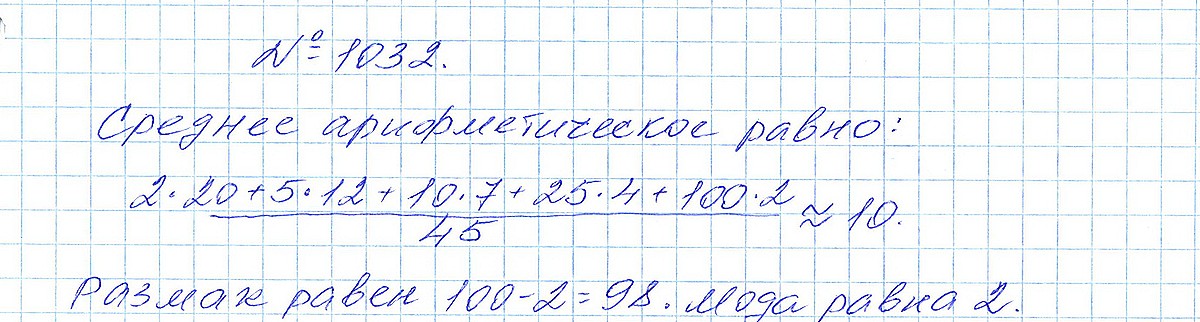 № 1032.
Среднее арифметическое равно:
2·20+5·12+10·7+25·4+100·2
≈ 10.
45
Размах равен 100-2=98. Мода равна 2.